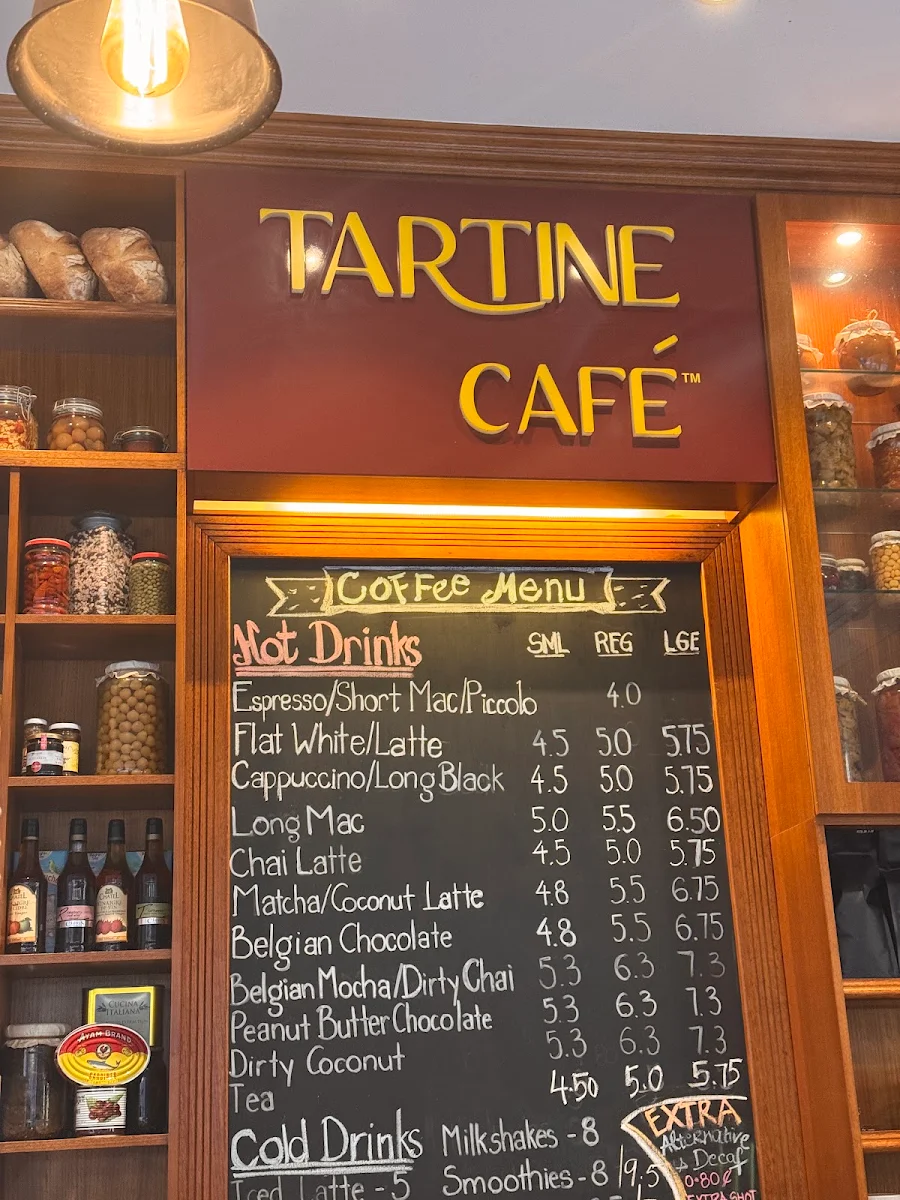 TARTINE
CAFÉ™
Coffee Menu
Hot Drinks SML REG LGE
Espresso/Short Mac/Piccolo 4.0
Flat White/Latte 4.5 5.0 5.75
Cappuccino/Long Black 4.5 5.0 5.75
Long Mac 5.0 5.5 6.50
Chai Latte 4.5 5.0 5.75
Matcha/Coconut Latte 4.8 5.5 6.75
Belgian Chocolate 4.8 5.5 6.75
Belgian Mocha/Dirty Chai 5.3 6.3 7.3
Peanut Butter Chocolate 5.3 6.3 7.3
Dirty Coconut 5.3 6.3 7.3
Tea 4.50 5.0 5.75
Cold Drinks Milkshakes - 8
Iced Latte - 5 Smoothies - 8 /9.5
EXTRA
Alternative
Decaf
0.80¢
EXTRA SHOT
CUCINA
ITALIANA
AYAM BRAND